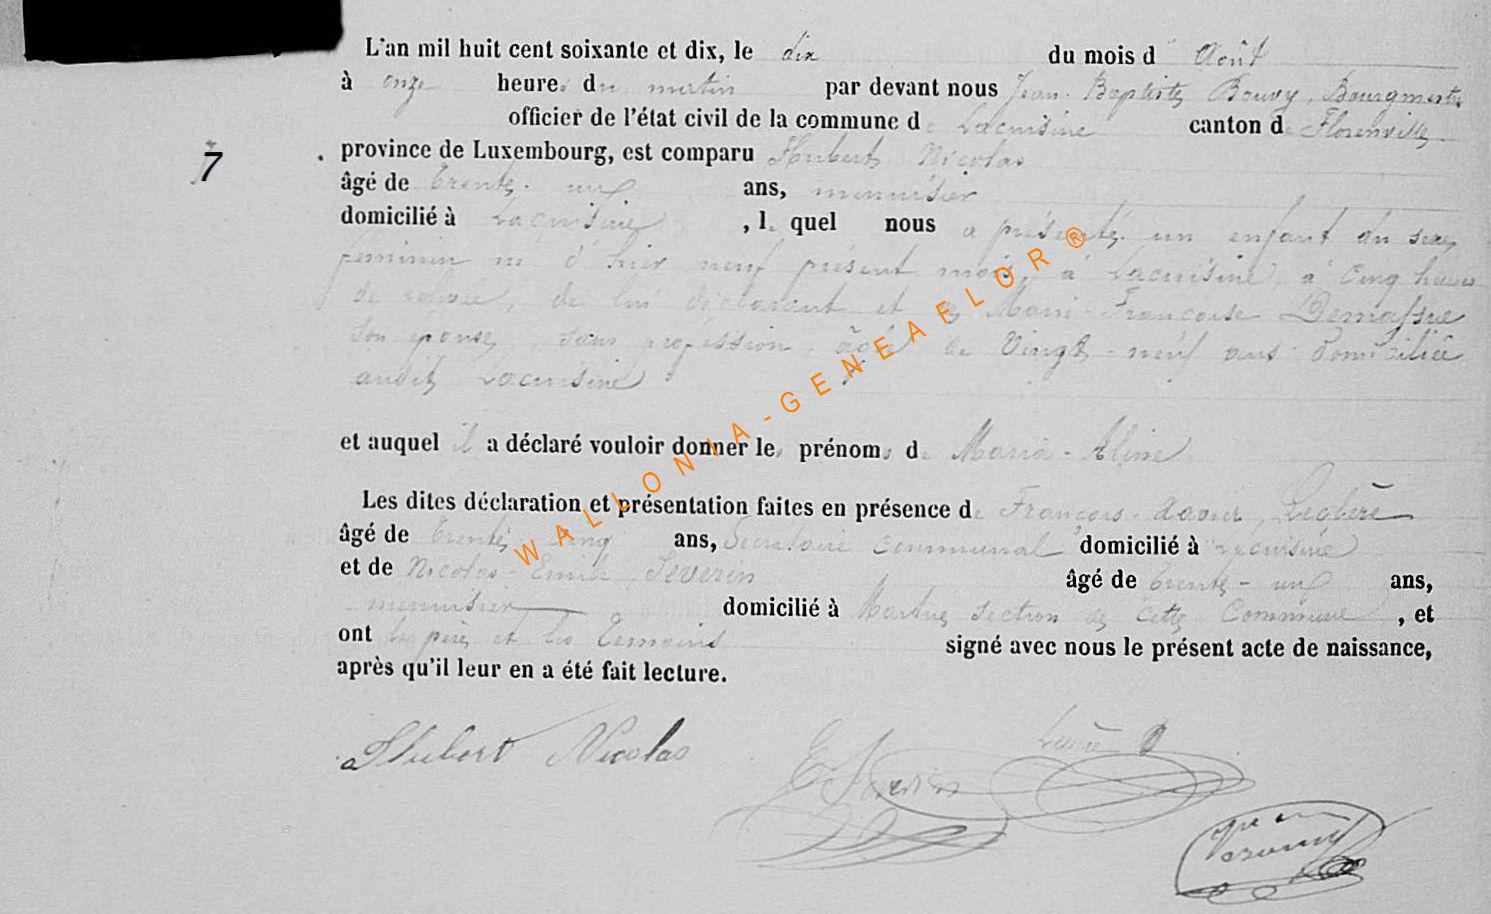 L'an mil huit cent soixante et dix, le dix du mois d'Août
à onze heures du matin par devant nous Jean Baptiste Bouvy, Bourgmestre,
officier de l'état civil de la commune de Lacuisine canton de Florenville
7 province de Luxembourg, est comparu Hubert Nicolas
âgé de trente-un ans, menuisier
domicilié à Lacuisine, lequel nous a présenté un enfant du sexe
féminin né d'hier neuf présent mois, à Lacuisine, à cinq heures
de relevée, de lui déclarant et de Marie-Françoise Demassue
son épouse, sans profession, âgée de Vingt-neuf ans domiciliée
audit Lacuisine
et auquel il a déclaré vouloir donner les prénoms de Maria-Aline
Les dites déclaration et présentation faites en présence de François-Xavier
âgé de trente cinq ans, Secrétaire communal domicilié à Lacuisine
et de Nicolas-Emile Severin âgé de trente-un ans,
menuisier domicilié à Martué section de cette Commune, et
ont les père et les témoins signé avec nous le présent acte de naissance,
après qu'il leur en a été fait lecture.
Hubert Nicolas
E Severin
WALLONIA-GENEAFLOR®